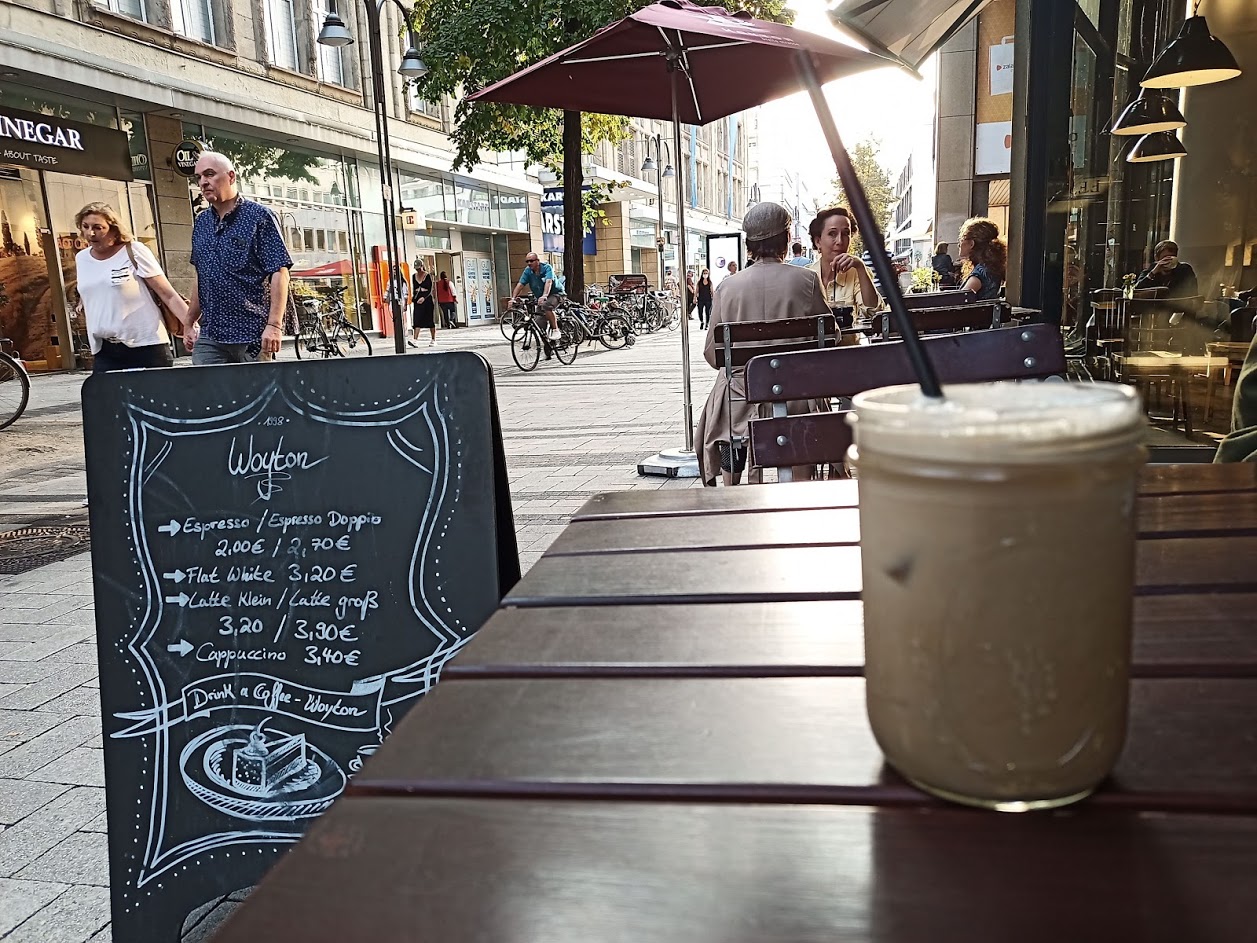 INEGAR
ABOUT TASTE
OIL
VINEGAR
KARSTADT
· 1998 ·
Woyton
→ Espresso / Espresso Doppio
2,00€ / 2,70€
→ Flat White 3,20€
→ Latte Klein / Latte groß
3,20 / 3,90€
→ Cappuccino 3,40€
Drink a Coffee - Woyton